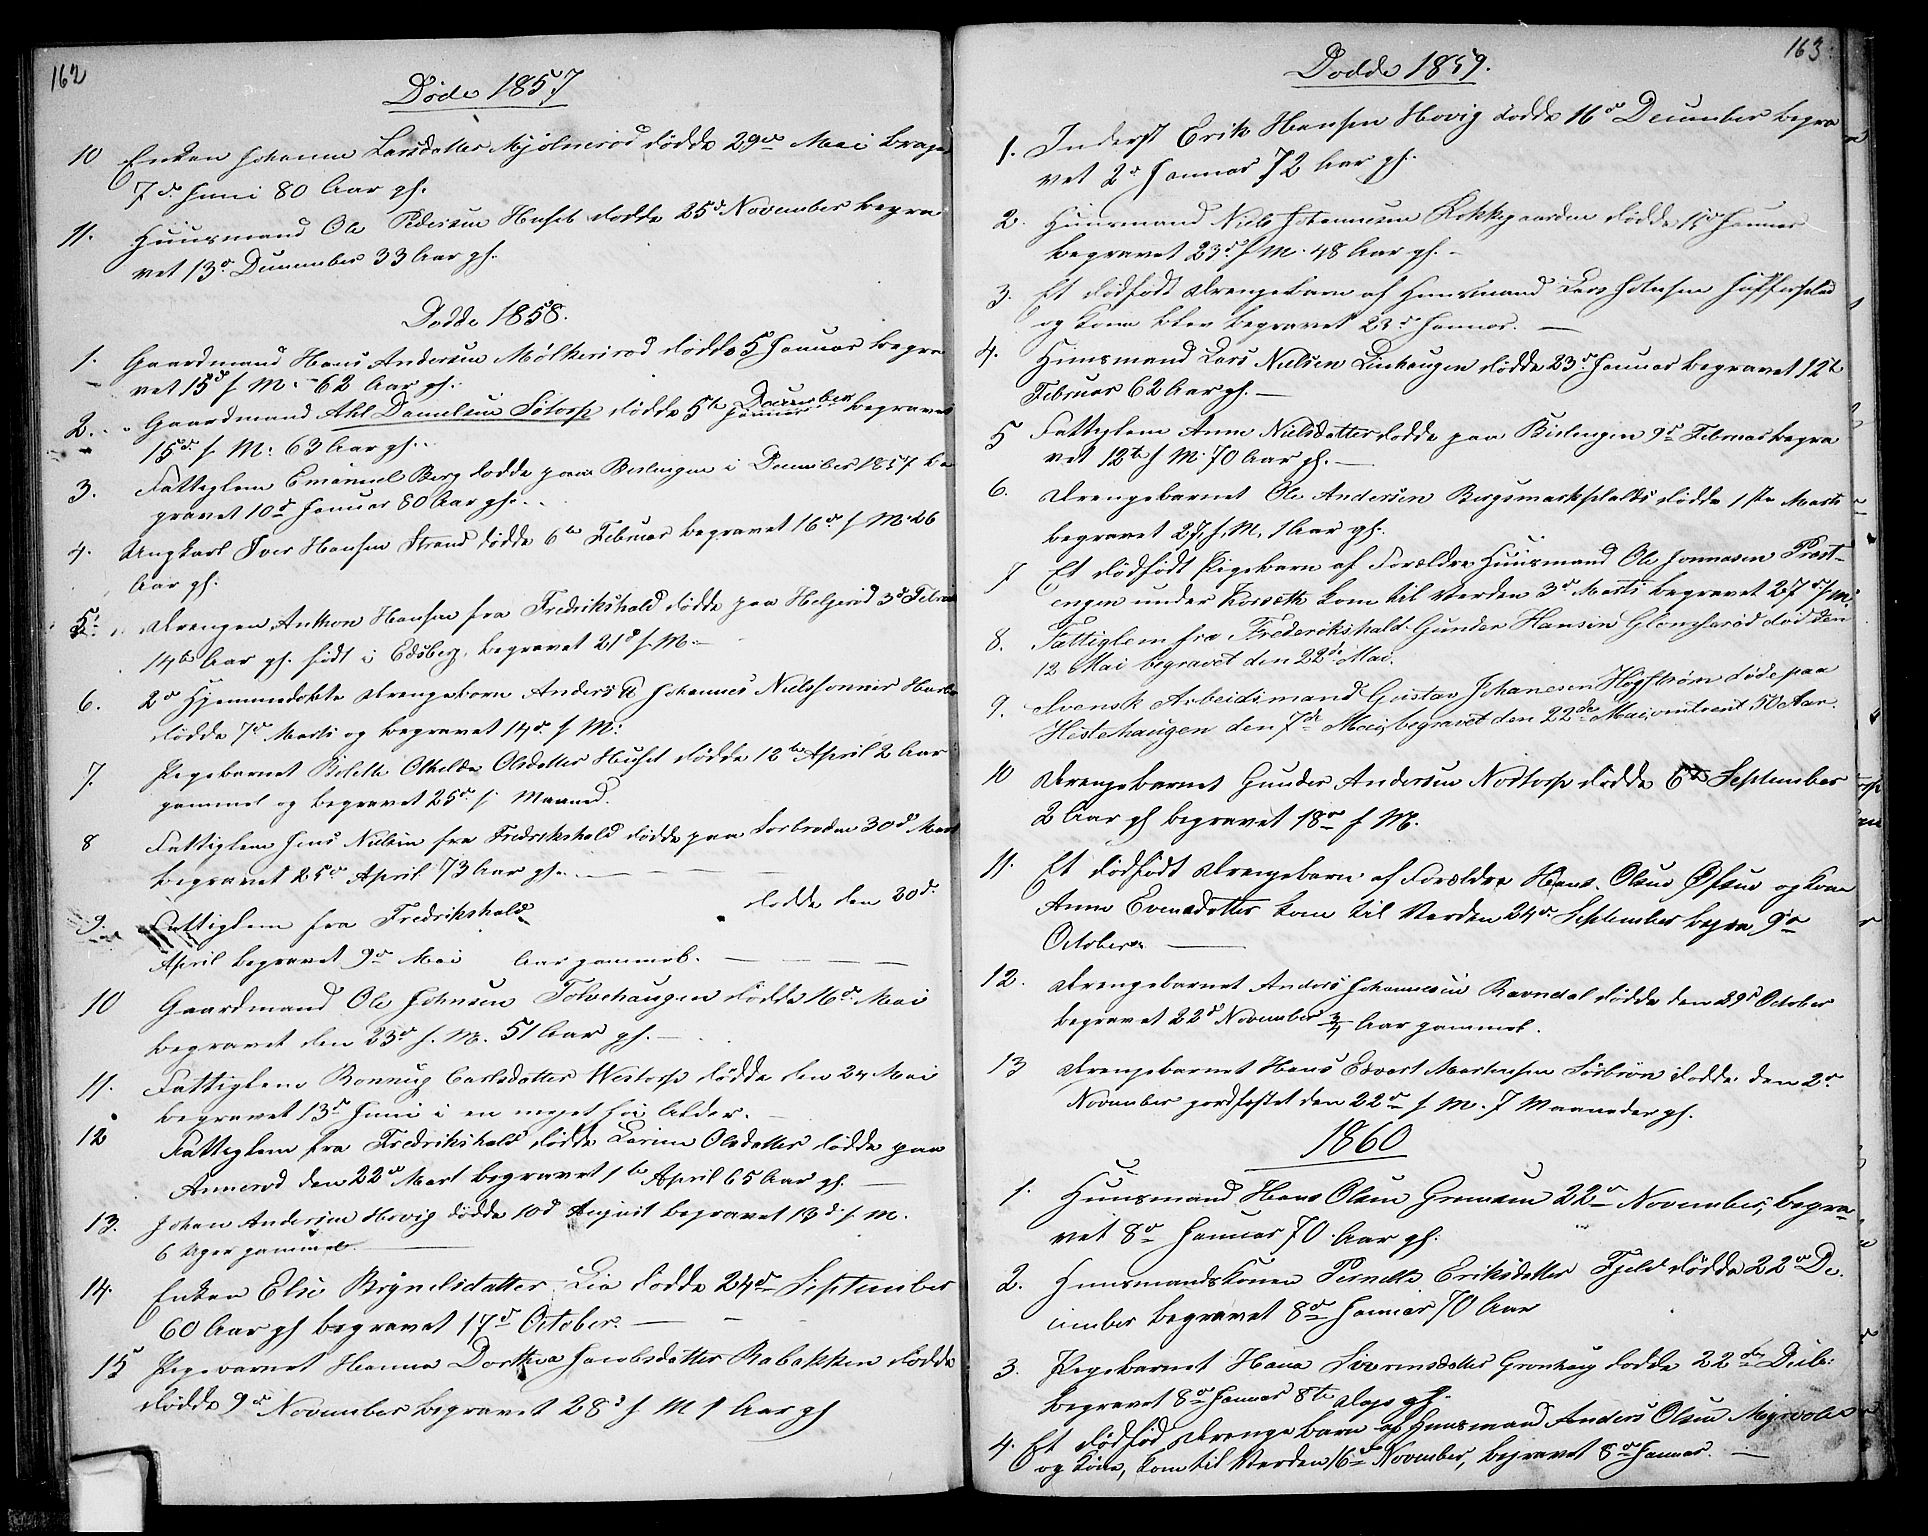 162
Døde 1857
10 Enken Johanne Larsdatter Mjølnerød dødde 29de Mai begra
7de Juni 80 Aar gl.
11. Huusmand Ole Pedersen Huset dødde 25d November begra
vet 13de December 33 Aar gl.
Dødde 1858.
1. Gaardmand Hans Andersen Mølkerirød dødde 5 Januar begra
vet 15d s. M. 62 Aar gl.
2. Gaardmand Ahl Danielsen Sötorp dødde 5te December begravet
15d s. M. 63 Aar gl.
3. Fattiglem Emanuel Berg dødde paa Berlengen i December 1857 be
gravet 10d Januar 80 Aar gl.
4. Ungkarl Iver Hansen Strand dødde 6te Februar begravet 16d s. M. 26
Aar gl.
5. Drengen Anthon Hansen fra Fredrikshald dødde paa Helgerød 3d Februar
14te Aar gl. født i Edsberg, begravet 21d s. M.
6. 2de Hjemmedøbte Drengebørn Anders & Johannes Nielssønner
dødde 7de Marts og begravet 14de s. M:
7. Pigebarnet Bolette Othelde Olsdatter Huset dødde 12te April 2 Aar
gammel og begravet 25de s. Maaned.
8 Fattiglem Jens Nielsen fra Fredrikshald dødde paa Sorbrøden 30d Mart
begravet 25de April 73 Aar gl.
9. Fattiglem fra Fredrikshald dødde den 30d
April begravet 9de Mai Aar gammel.
10 Gaardmand Ole Johnsen Tolvehaugen dødde 16d Mai
begravet den 23de s. M. 51 Aar gl.
11. Fattiglem Bonnug Carlsdatter Westorp dødde den 24 Mai
begravet 13d Juni i en meget høi Alder.
12 Fattiglem fra Fredrikshald dødde Karine Olsdatter dødde paa
Annerød den 22d Mart begravet 1te April 65 Aar gl.
13. Johan Andersen Hovig dødde 10d August begravet 13d s. M.
6 Uger gammel.
14. Enken Else Brynelsdatter Lie dødde 24d September
60 Aar gl begravet 17d October.
15 Pigebarnet Hanna Dorthea Jacobsdatter Rabakken dødde
dødde 9de November begravet 28d s M 1 Aar gl
163.
Dødde 1859.
1. Inderst Erik Hansen Hovig dødde 16de December begra
vet 2d Januar 72 Aar gl.
2. Huusmand Niels Johannesen Kokkegaarden dødde 15d Januar
begravet 23d s M. 48 Aar gl.
3. Et dødfødt Drengebarn af Huusmand Lars Johnsen
og Kone blev begravet 23d Januar.
4. Huusmand Lars Nielsen Linhaugen dødde 23d Januar begravet 12te
Februar 62 Aar gl.
5 Fattiglem Anne Nielsdatter dødde paa Bislengen 9d Februar begra
vet 12te s M. 70 Aar gl.
6. Drengebarnet Ole Andersen Borgsmarksplads dødde 1ste Marts
begravet 27. s. M. 1 Aar gl.
7 Et dødfødt Pigebarn af Forældre Huusmand Ole Jonnasen Præst-
engen under Korseth kom til Verden 3de Marts begravet 27de s M.
8. Fattiglem fra Frederikshald Gunder Hansen Glenserød død den
12 Mai begravet den 22de Mai.
9. Svensk Arbeidsmand Gustav Johanesen Høgstrøn døde paa
Hestehaugen den 7de Mai, begravet den 22de Mai, omtrent 50 Aar.
10 Drengebarnet Gunder Andersen Nortorp dødde 6te September
2 Aar gl begravet 18de s M.
11. Et dødfødt Drengebarn af Forældre Hans Olsen Ofsen og Kone
Anne Evensdatter kom til Verden 24de September begra 9de
October.
12. Drengebarnet Anders Johannesen Ravndal dødde den 29d October
begravet 22d November 3/4 Aar gammel.
13 Drengebarnet Hans Edvart Martinsen Sörbrön dødde den 2de
November jordfæstet den 22de s M. 7 Maaneder gl.
1860
1. Huusmand Hans Olsen Gronsum 22de November, begra-
vet 8de Januar 70 Aar gl.
2. Huusmandskonen Pernelle Eriksdatter Fjeld dødde 22de De-
cember begravet 8de Januar 70 Aar
3. Pigebarnet Hana Sörensdatter Gronhaug dødde 22de Decbr.
begravet 8de Januar 8te Dage gl.
4. Et dødfød Drengebarn af Huusmand Anders Olsen Myrvold
og Kone, kom til Verden 16de November, begravet 8de Januar.